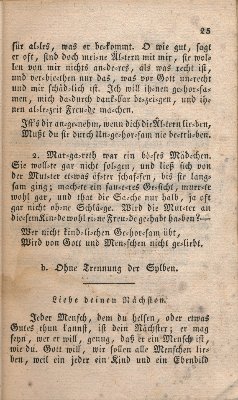 25
für al-les, was er be-kommt. O wie gut, sagt
er oft, sind doch mei-ne Äl-tern mit mir, sie wol-
len von mir nichts an-de-res, als was recht ist,
und ver-bie-then nur das, was vor Gott un-recht
und mir schäd-lich ist. Ich will ih-nen ge-hor-sa-
men, mich da-durch dank-bar be-zei-gen, und ih-
nen al-le-zeit Freu-de ma-chen.
Ist's dir an-ge-nehm, wenn dich die Äl-tern lie-ben,
Mußt du sie durch Un-ge-hor-sam nie be-trü-ben.
2. Mar-ga-reth war ein bö-ses Mäd-chen.
Sie woll-te gar nicht fol-gen, und ließ sich von
der Mut-ter et-was öf-ter schaf-fen, bis sie lang-
sam ging; mach-te ein sau-e-res Ge-sicht, murr-te
wohl gar, und that die Sa-che nur halb, ja oft
gar nicht ohne Schlä-ge. Wird die Mut-ter an
die-sem Kin-de wohl ei-ne Freu-de ge-habt ha-ben?—
Wer nicht kind-li-chen Ge-hor-sam übt,
Wird von Gott und Men-schen nicht ge-liebt.
b. Ohne Trennung der Sylben.
Liebe deinen Nächsten.
Jeder Mensch, dem du helfen, oder etwas
Gutes thun kannst, ist dein Nächster; er mag
seyn, wer er will, genug, daß er ein Mensch ist,
wie du. Gott will, wir sollen alle Menschen lie-
ben, weil ein jeder ein Kind und ein Ebenbild